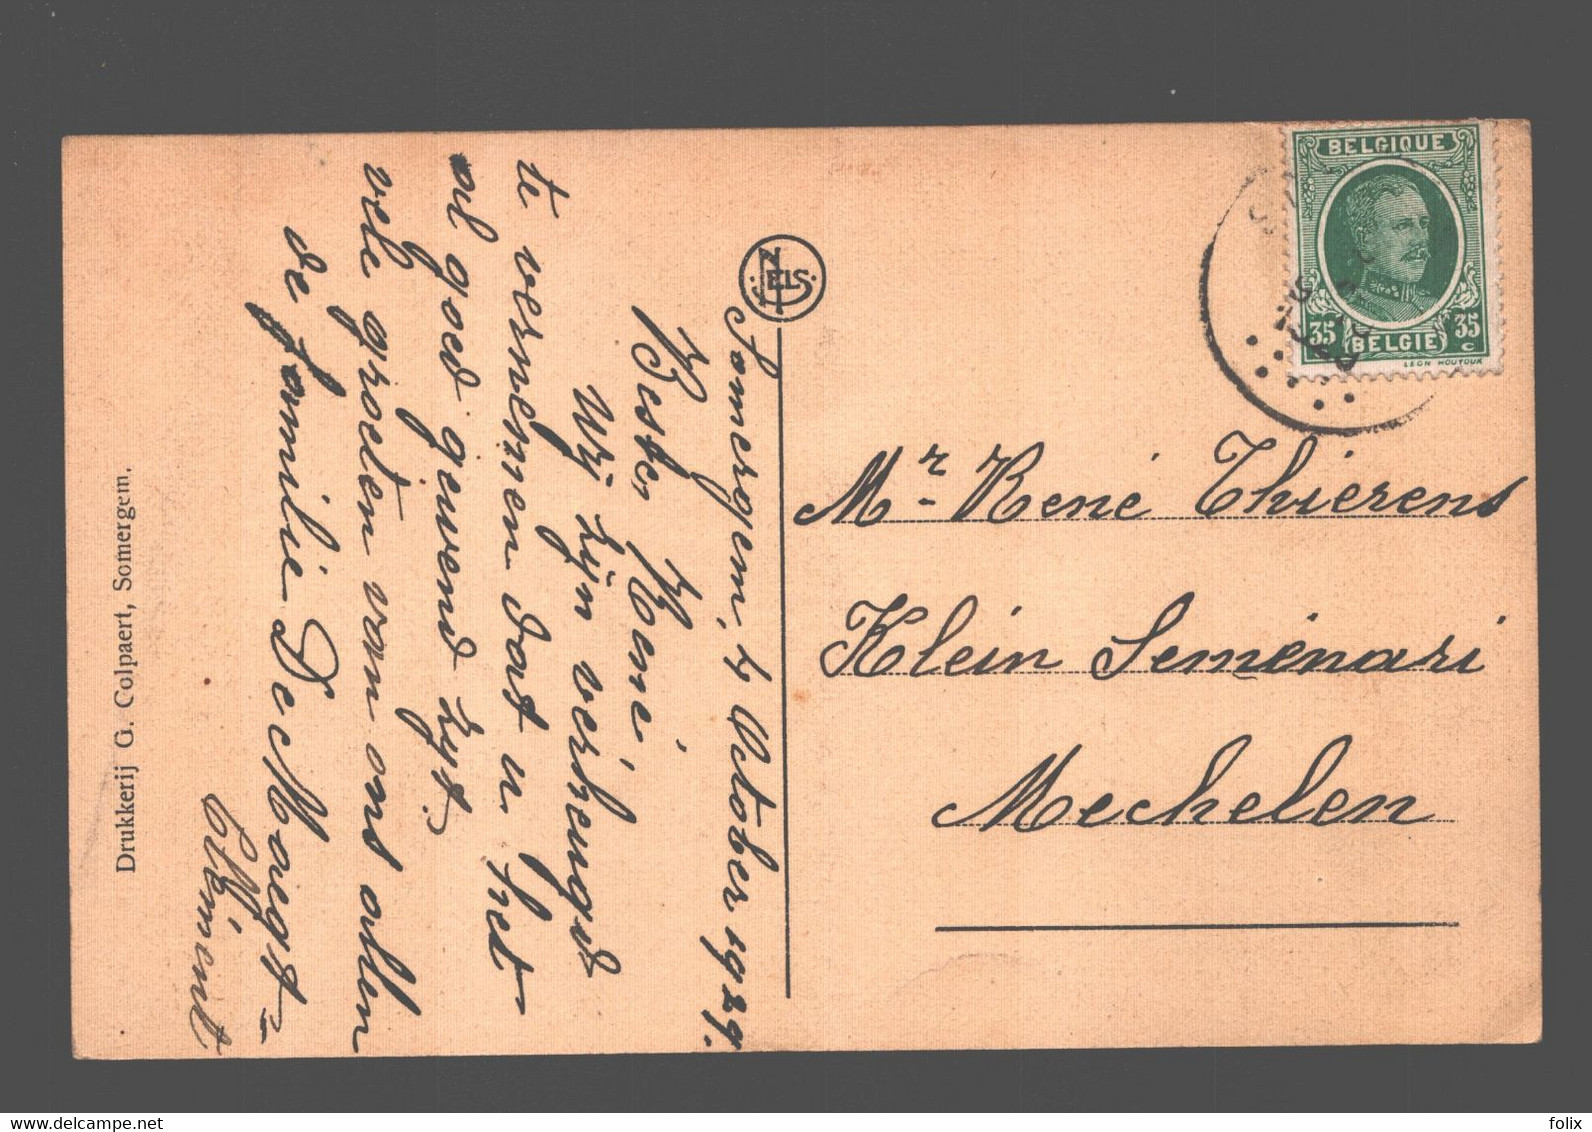 Somergem, 4 October 1929.
Beste René,
Wij zijn verheugd
te vernemen dat u het
al goed gewend zijt.
vele groeten van ons allen
de familie De Maegt-
Clément
Drukkerij G. Colpaert, Somergem.
NELS
BELGIQUE
35 35
c c
BELGIË
LEON HOUYOUX
Mr. René Thierens
Klein Semenari
Mechelen
www.delcampe.net
folix